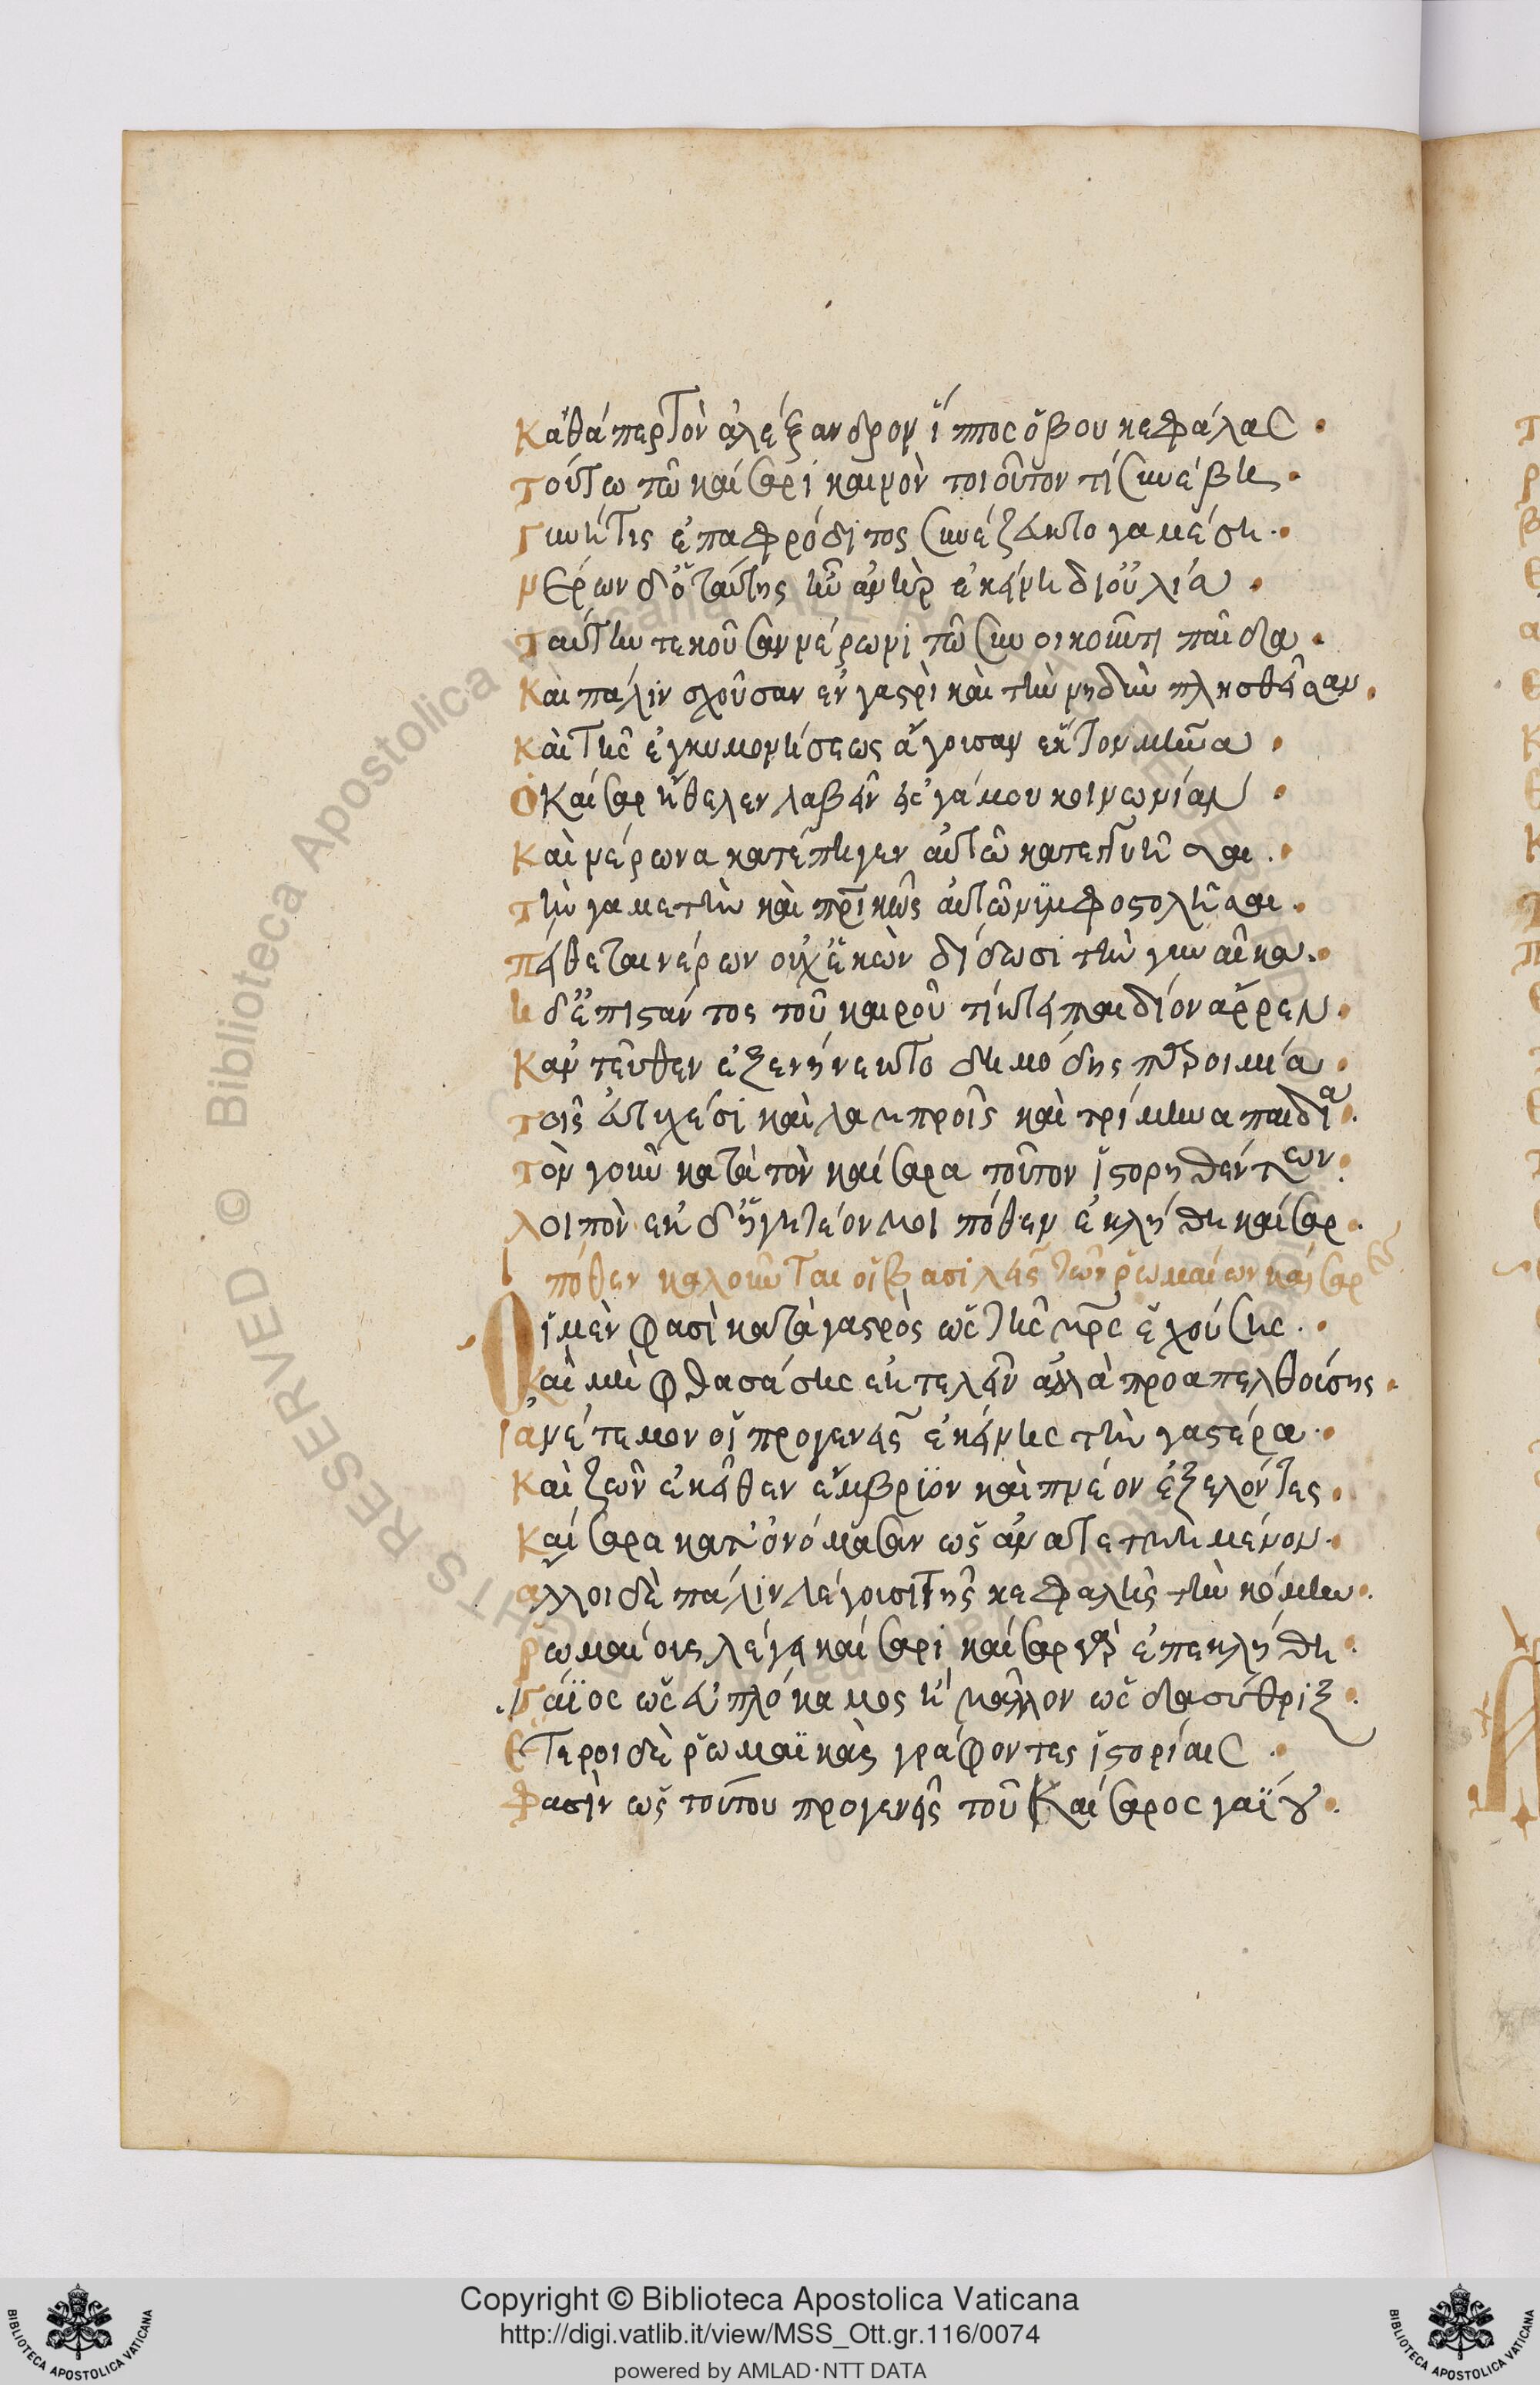 Καθάπερ τὸν ἀλέξανδρον ἵππος ὁ βουκεφάλας.
τούτω τῶ καίσαρι καιρὸν τοιοῦτον τί συνέβη.
Γυνή τις ἐπαφρόδιτος συνέζευκτο γαμέτη.
νέρων δ' ὁ ταύτης ἦν ἀνὴρ ἐκείνη δ' ἰουλία.
ταύτην τεκοῦσαν νέρωνι τῶ συνοικοῦντι παῖδα.
Καὶ πάλιν σχοῦσαν ἐν γαστρὶ καὶ τὴν νηδὺν πλησθεῖσαν.
καὶ τῆς ἐγκυμονήσεως ἄγουσαν ἕκτον μῆνα.
ὁ Καῖσαρ ἤθελεν λαβεῖν εἰς γάμου κοινωνίαν
Καὶ νέρωνα κατέπειγεν αὐτῶ κατεγγυῆσαι.
τὴν γαμετὴν καὶ πρικῶς αὐτῶ νυμφοστολῆσαι.
πείθεται νέρων οὐχ ἑκὼν δίδωσι τὴν γυναῖκα.
ἡ δ' ἐπιστάντος τοῦ καιροῦ τίκτει παιδίον ἄρρεν.
Καντεῦθεν ἐξενήνεκτο δημώδης παροιμία.
τοῖς εὐτυχέσι καὶ λαμπροῖς καὶ τρίμηνα παιδία.
τὸν γοῦν κατὰ τὸν καίσαρα τοῦτον ἱστορηθέντων.
λοιπὸν ἐκδιηγητέον μοι πόθεν ἐκλήθη καῖσαρ.
πόθεν καλοῦνται οἱ βασιλεῖς τῶν ῥωμαίων καίσαρες
Οἱ μὲν φασὶ κατὰ γαστρὸς ὡς τῆς μρς ἐχούσης.
Καὶ μὴ φθασάσης ἐκτελεῖν ἀλλὰ προαπελθούσης.
ἀνέτεμον οἱ προγενεῖς ἐκείνης τὴν γαστέρα.
Καὶ ζῶν ἐκεῖθεν ἔμβρϊον καὶ πνέον ἐξελόντες.
Καίσαρα κατ' ὀνόμασαν ὡς ἀνατετμημένον.
ἄλλοι δὲ πάλιν λέγουσι τῆς κεφαλῆς τὴν κόμην.
ῥωμαίοις λέγει καίσαρι καῖσαρ γὰρ ἐπεκλήθη.
Γάϊος ὡς εὐπλόκαμος ἢ μᾶλλον ὡς δασύθριξ.
Ἕτεροι δὲ ῥωμαϊκὰς γράφοντες ἱστορίας.
Φασὶν ὡς τούτου προγενεῖς τοῦ Καίσαρος γαΐου.
Copyright © Biblioteca Apostolica Vaticana
http://digi.vatlib.it/view/MSS_Ott.gr.116/0074
powered by AMLAD·NTT DATA